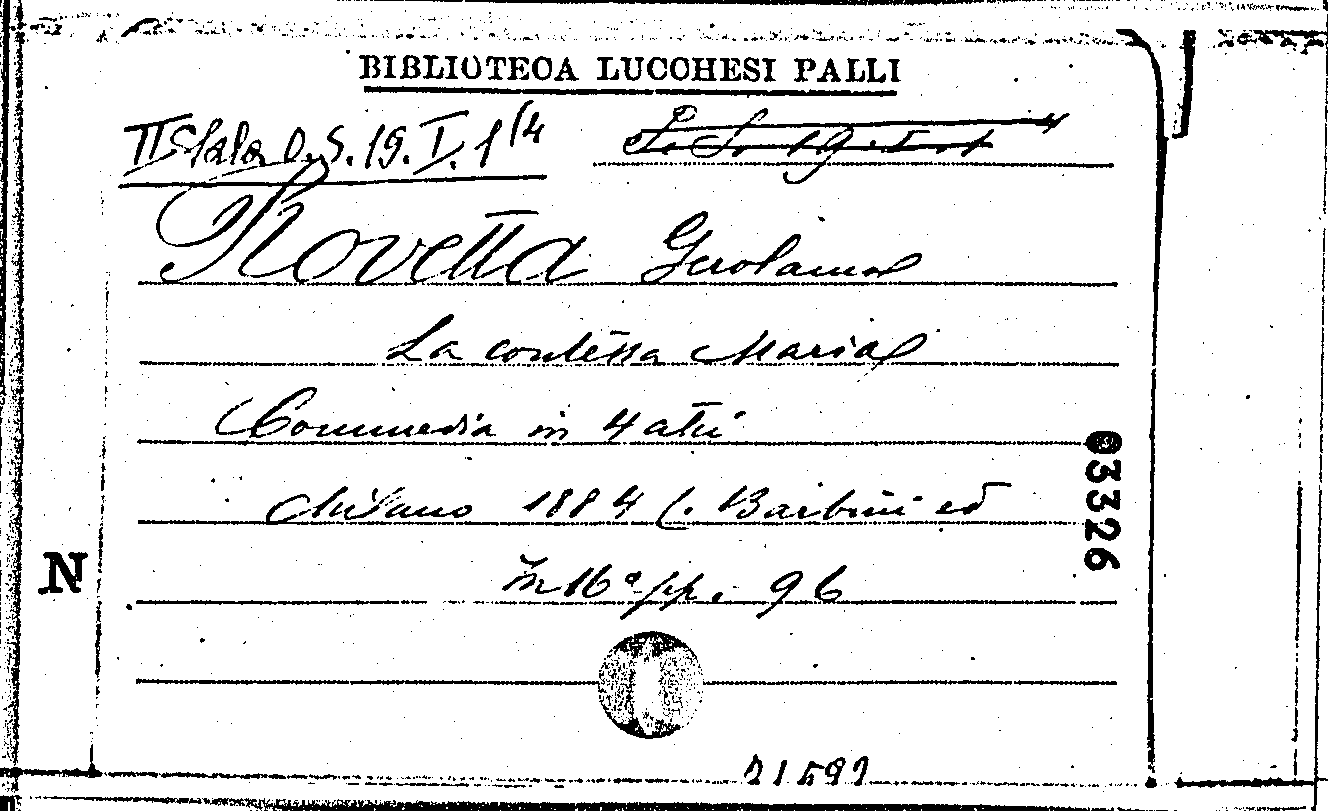 BIBLIOTECA LUCCHESI PALLI
II Sala 0.5.19.I.1/4
Rovetta Gerolamo
La contessa Maria
Commedia in 4 atti
Milano 1884 C. Barbini ed
In 16° pp. 96
03326
N